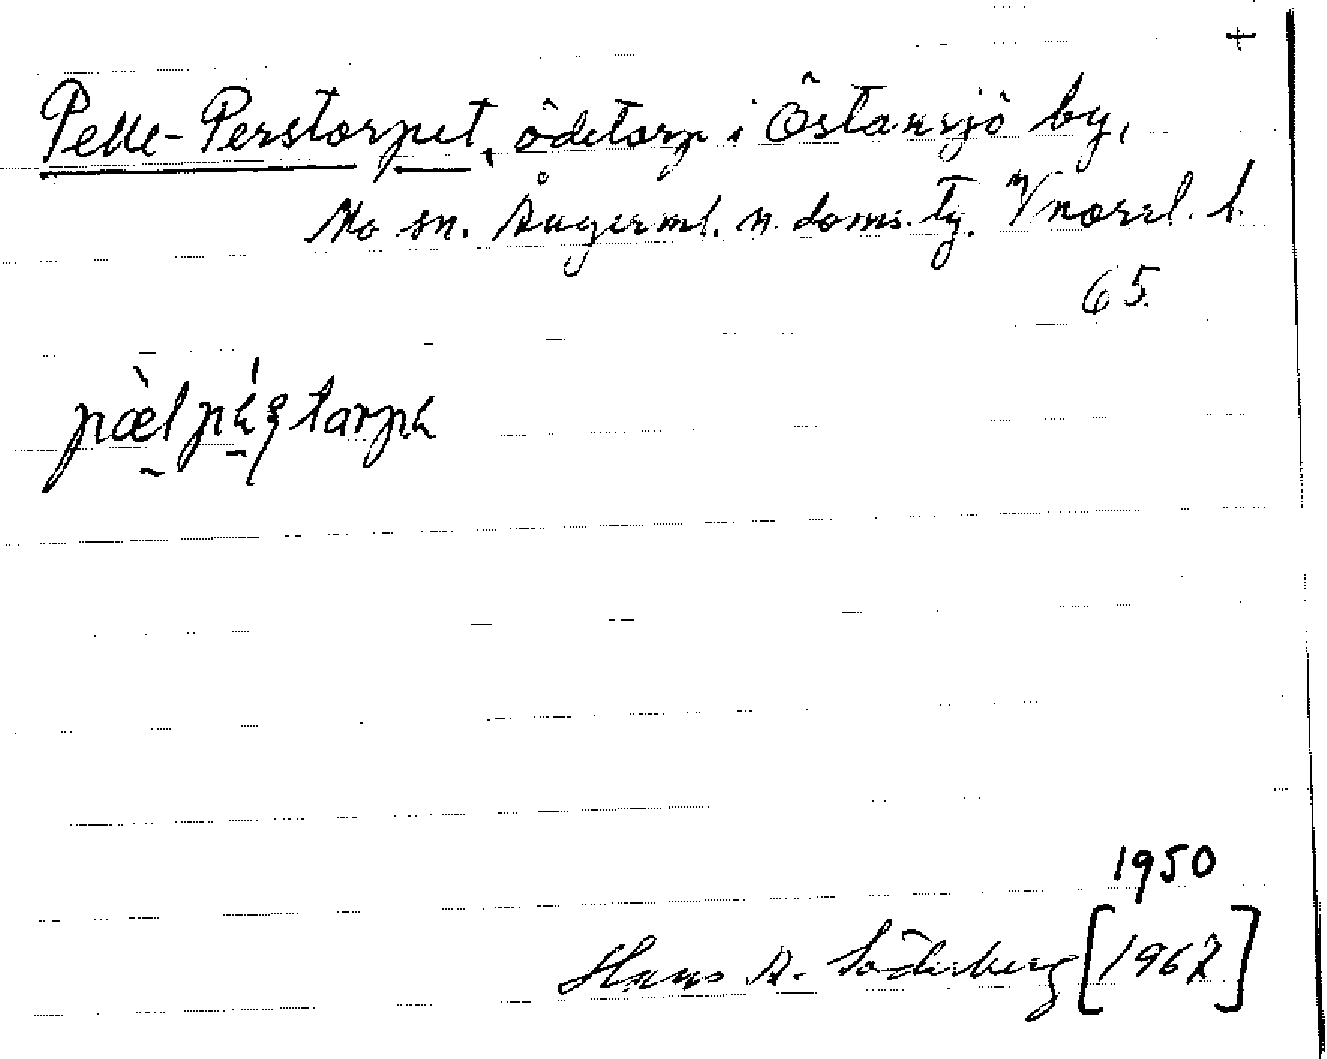 +
Pelle-Perstorpet, ödetorp i Östansjö by,
Mo sn. Ångerml. n. doms. tg. Vnorrl. l.
65.
pæ̀lpǽʂtarpa
1950
Hans A. Söderberg [1967]